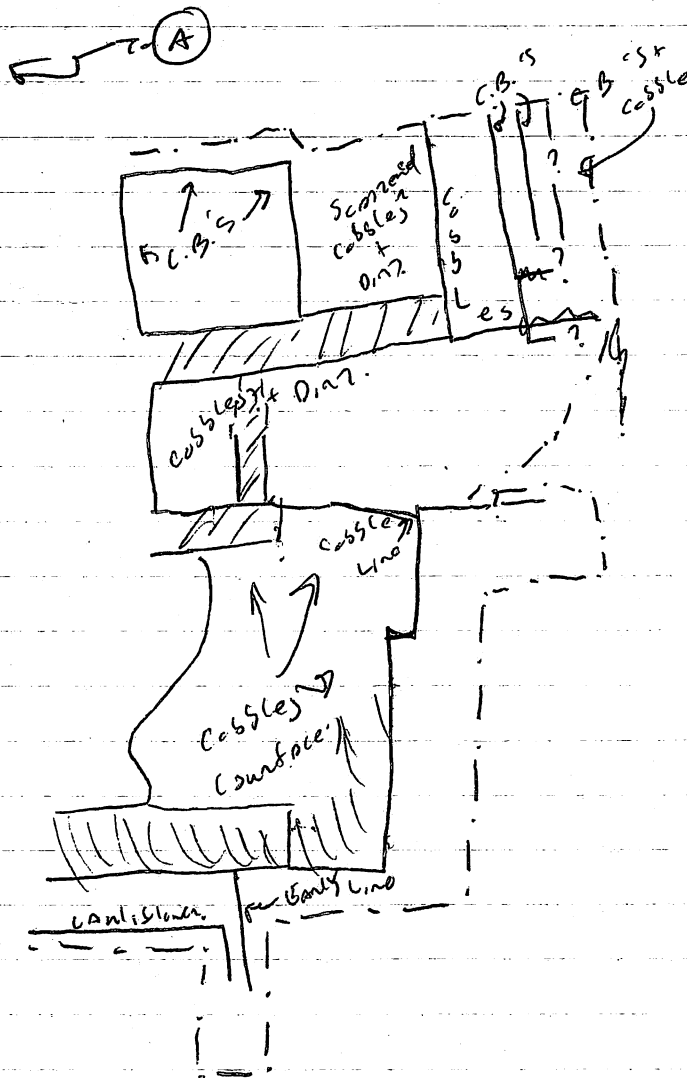 A
C.B.'S
C.B.'S +
Cobble
?
C.B.'S
Scattered
Cobbles
+
Dirt
Cobbles
?
?
Cobbles + Dirt.
Cobble
Line
Cobbles
Surface
Early Line